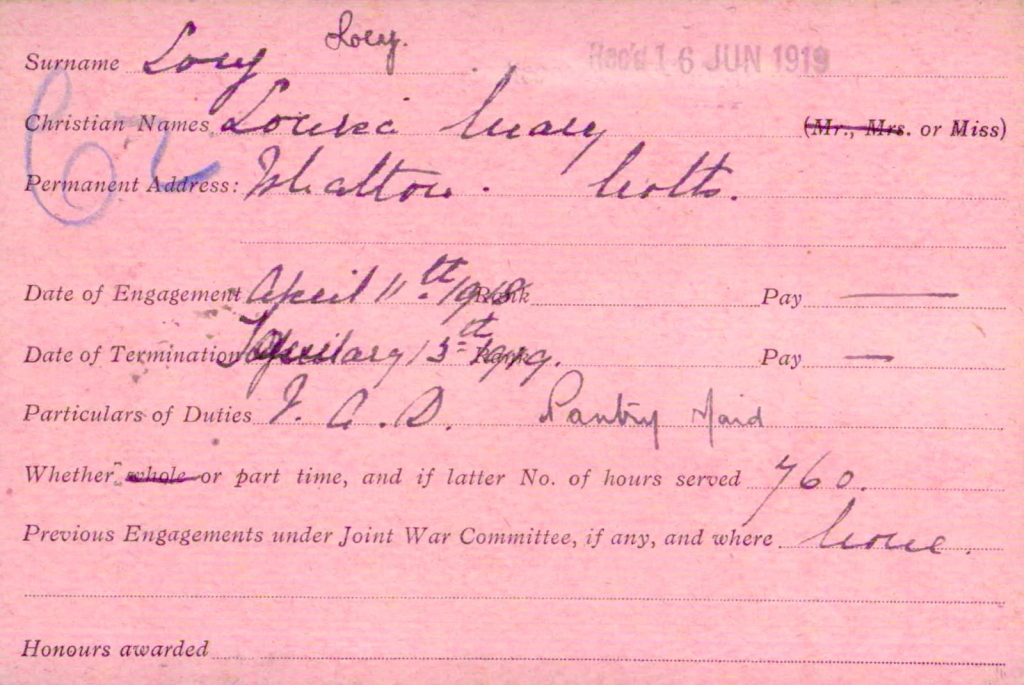 Surname Lovy Lovy.
Rec'd 16 JUN 1919
Christian Names Louisa Mary (Mr., Mrs. or Miss)
62
Permanent Address: Whatton. Notts.
Date of Engagement April 11th 1918 Rank Pay —
Date of Termination 13th 1919. Rank Pay —
Particulars of Duties V. A. D. Pantry Maid
Whether whole or part time, and if latter No. of hours served 760.
Previous Engagements under Joint War Committee, if any, and where None.
Honours awarded